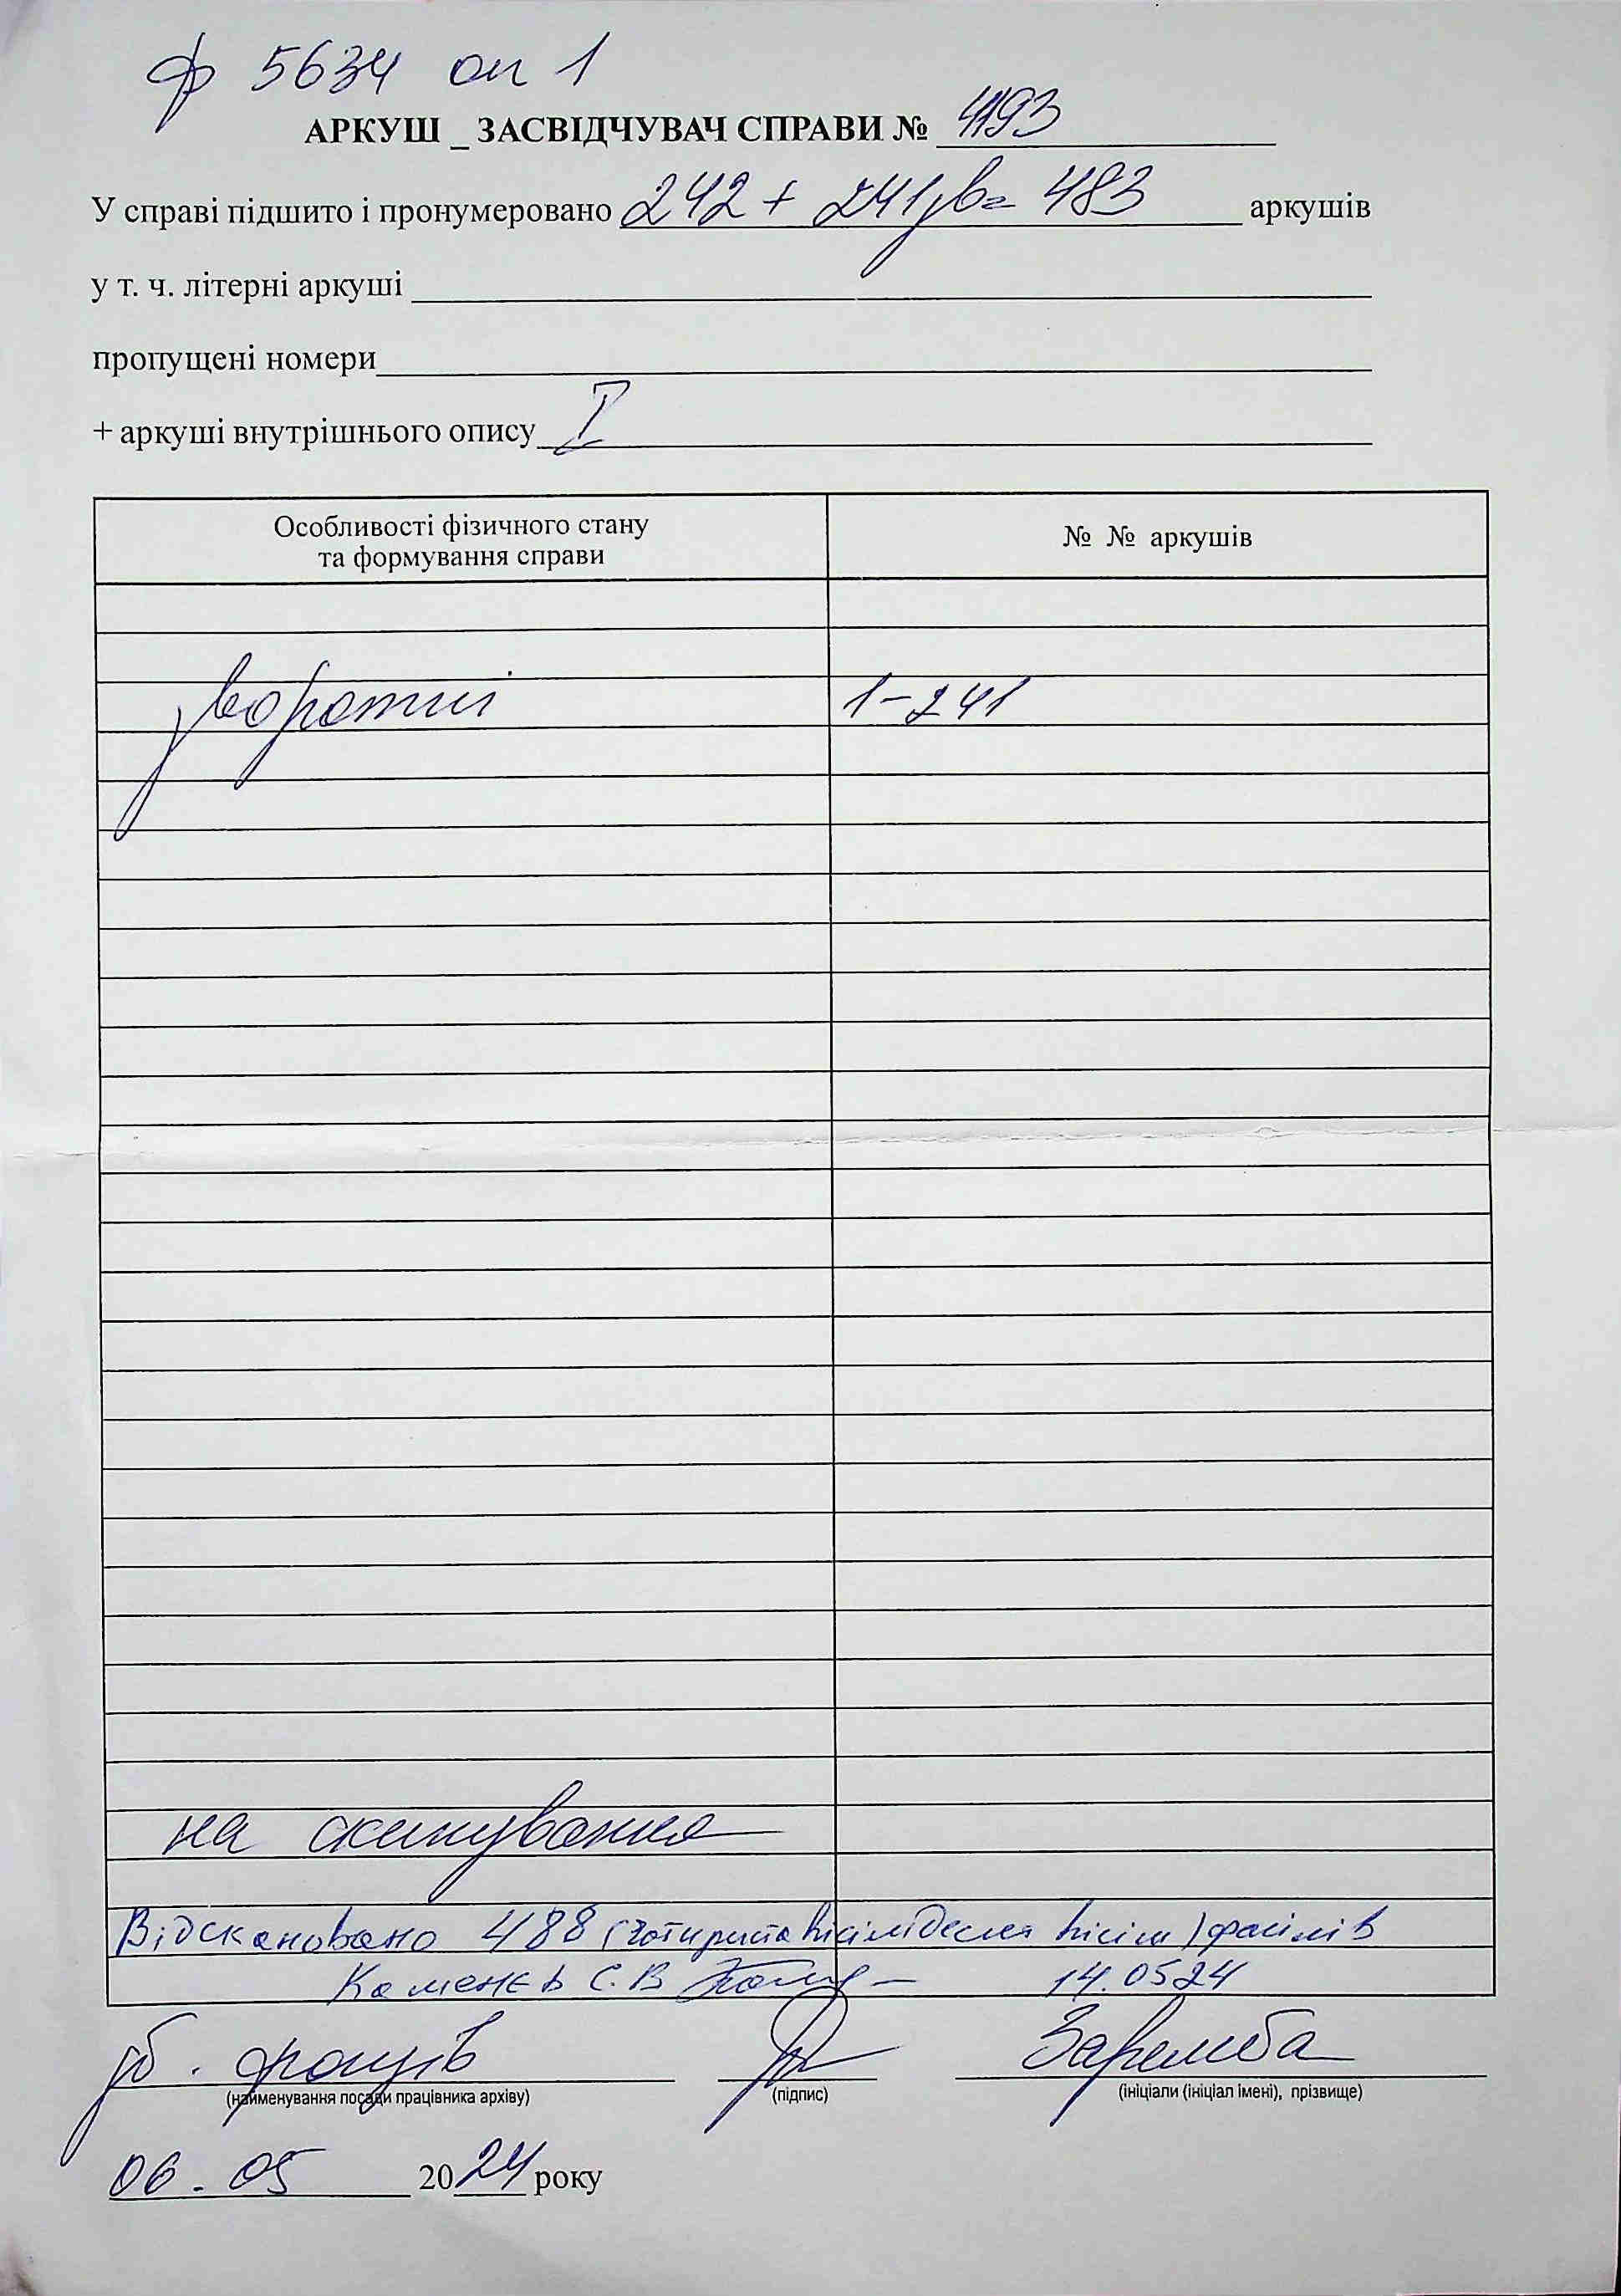 ф 5634 оп 1
АРКУШ _ ЗАСВІДЧУВАЧ СПРАВИ № 4193
У справі підшито і пронумеровано 242 + 241зв= 483 аркушів
у т. ч. літерні аркуші
пропущені номери
+ аркуші внутрішнього опису I
Особливості фізичного стану та формування справи
№ № аркушів
зворотні 1-241
на сканування
Відскановано 488 (чотириста вісімдесят вісім) файлів
Каменєв С.В 14.0524
фахів Заремба
(найменування посади працівника архіву) (підпис) (ініціали (ініціал імені), прізвище)
06.05 2024 року